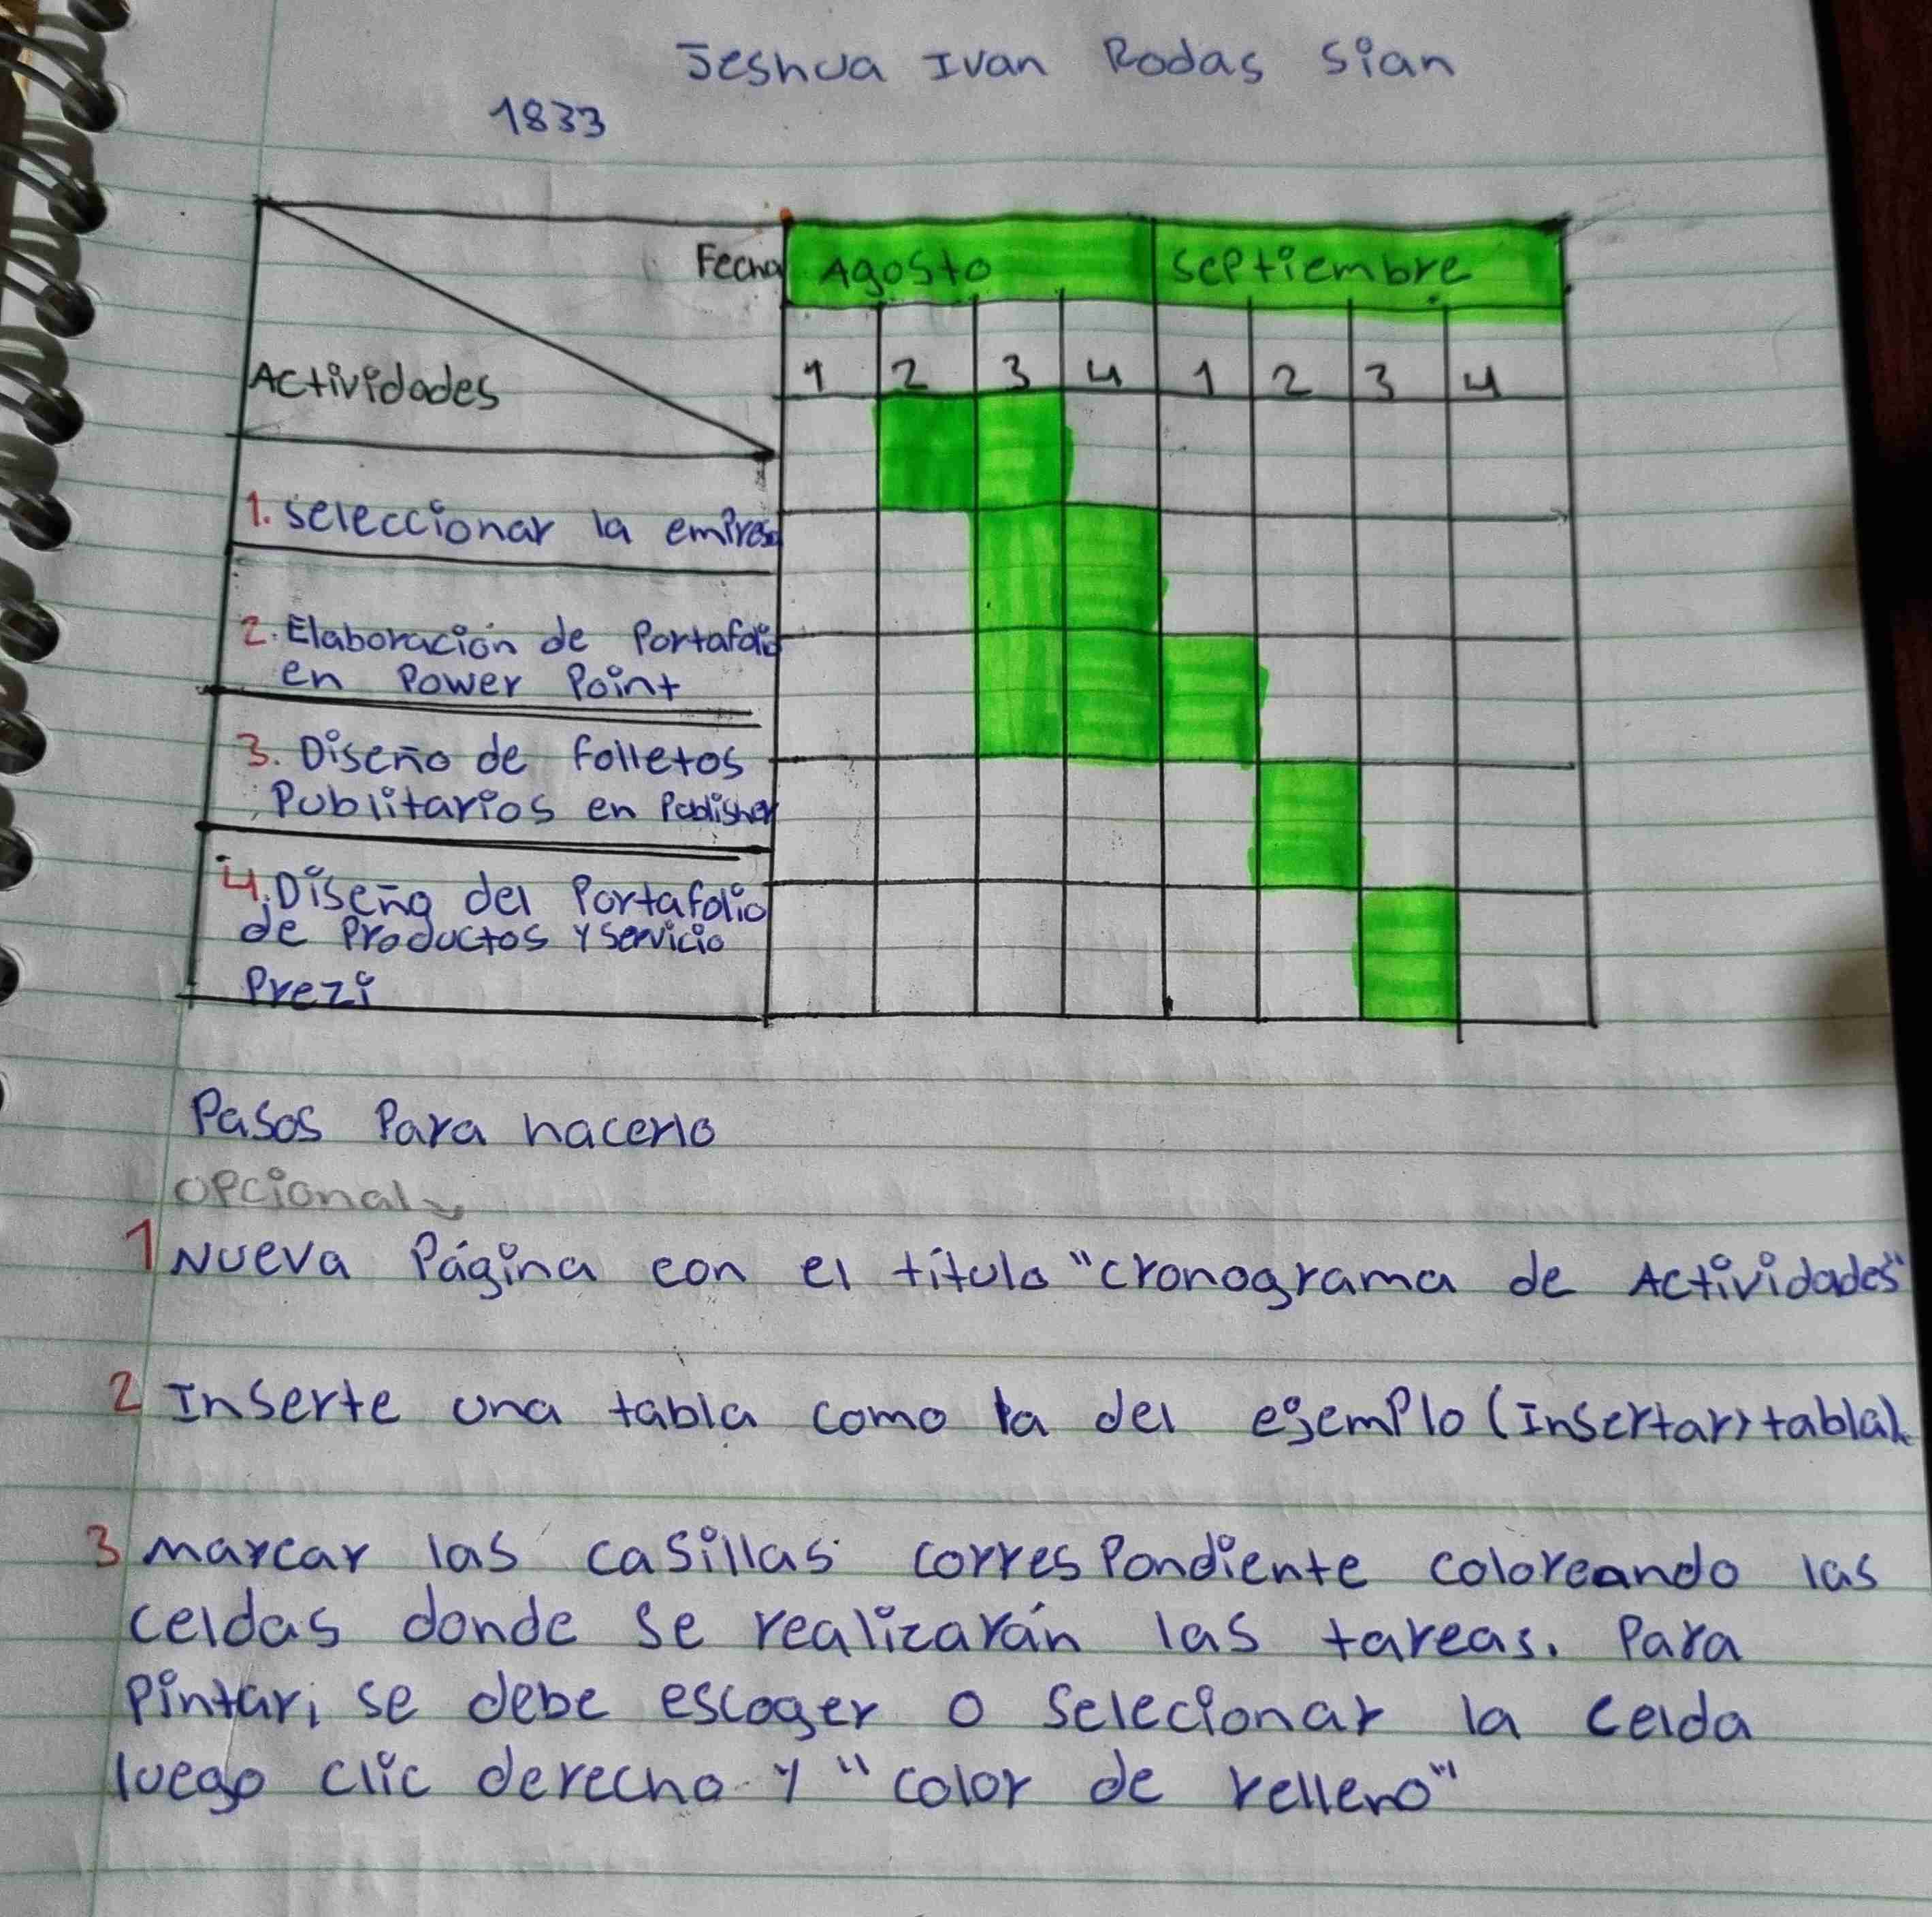 Jeshua Ivan Rodas Sian
1833
Fecha Agosto Septiembre
Actividades 1 2 3 4 1 2 3 4
1. Seleccionar la empresa
2. Elaboración de Portafolio
en Power Point
3. Diseño de folletos
Publitarios en Publisher
4. Diseño del Portafolio
de Productos y servicio
Prezi
Pasos Para hacerlo
opcional
1 Nueva Página con el título "cronograma de Actividades"
2 Inserte una tabla como la del ejemplo (Insertar, tabla).
3 marcar las casillas correspondiente coloreando las
celdas donde se realizarán las tareas. Para
pintar, se debe escoger o selecionar la celda
luego clic derecho y "color de relleno"